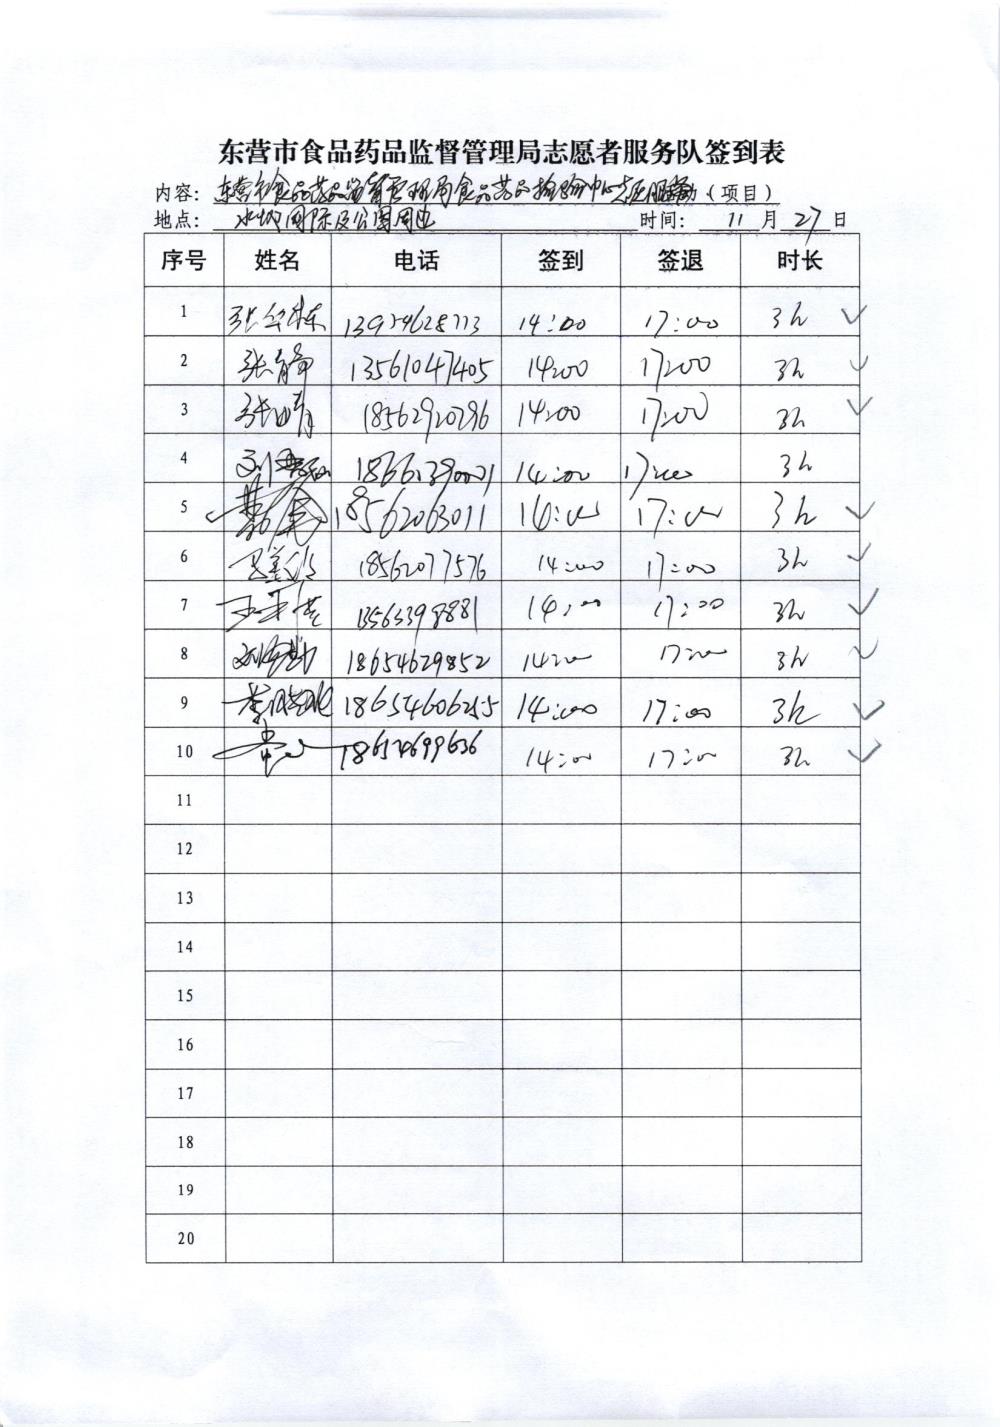 东营市食品药品监督管理局志愿者服务队签到表
内容: 东营市食品药品监督管理局食品药品检验中心志愿服务活动（项目）
地点: 国际及公园周边 时间: 11 月 27 日
序号 姓名 电话 签到 签退 时长
1 张 14:00 17:00 3h
2 张静 13561047405 14:00 17:00 3h
3 张晴 18562920296 14:00 17:00 3h
4 刘 18661390021 14:00 17:00 3h
5 18562063011 14:00 17:00 3h
6 18562077576 14:00 17:00 3h
7 王 13563398881 14:00 17:00 3h
8 刘 18654629852 14:00 17:00 3h
9 李 18654606255 14:00 17:00 3h
10 18654699636 14:00 17:00 3h
11
12
13
14
15
16
17
18
19
20